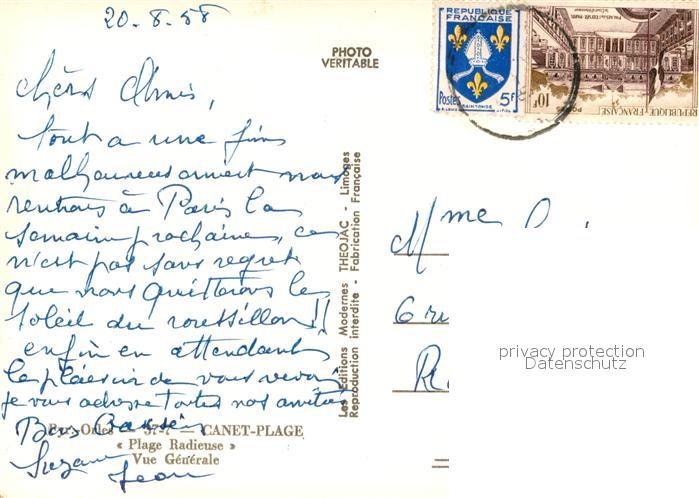 20.8.58
Chers Amis,
tout a une fin
malheureusement nous
rentrons à Paris la
semaine prochaine, ce
n'est pas sans regret
que nous quitterons le
soleil du roussillon !!
enfin en attendant
le plaisir de vous revoir
je vous adresse toutes nos amitiés
Bons Baisers
Suzanne
Jean
PHOTO
VERITABLE
REPUBLIQUE
FRANÇAISE
Postes 5F
SAINTONGE
10F
REPUBLIQUE FRANÇAISE
Les Editions Modernes THEOJAC - Limoges
Reproduction interdite - Fabrication Française
Mme
6 ru
privacy protection
Datenschutz
Pyr.-Orles — 37-7 — CANET-PLAGE
« Plage Radieuse »
Vue Générale